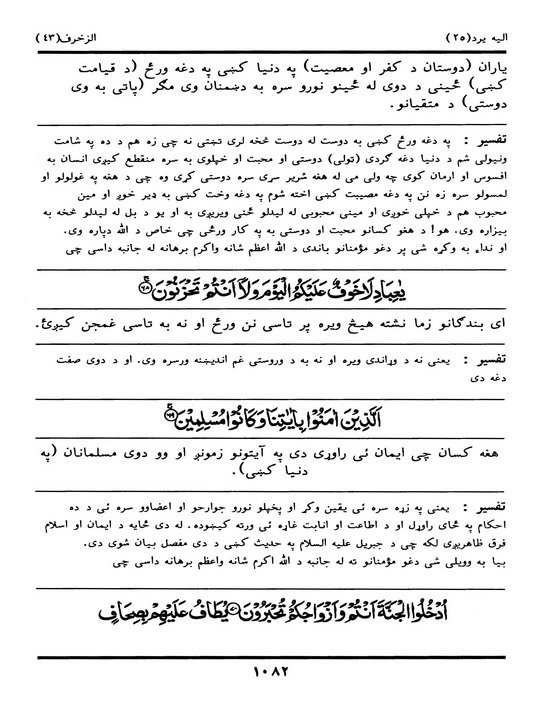 الیه یرد(۲۵) الزخرف(۴۳)
یاران (دوستان د کفر او معصیت) په دنیا کښی په دغه ورځ (د قیامت
کښی) ځینی د دوی له ځینو نورو سره به دښمنان وی مگر (پاتی به وی
دوستی) د متقیانو.
تفسیر : په دغه ورځ کښی به دوست له دوست څخه لری تښتی نه چی زه هم د ده په شامت
ونیولی شم د دنیا دغه گردی (تولی) دوستی او محبت او خپلوی به سره منقطع کیږی انسان به
افسوس او ارمان کوی چه ولی می له هغه شریر سړی سره دوستی کړی وه چی د هغه په غولولو او
لمسولو سره زه نن په دغه مصیبت کښی اخته شوم په دغه وخت کښی به ډیر خوږ او مین
محبوب هم د خپلی خوږی او مینی محبوبی له لیدلو ځنی ویریږی به او یو د بل له لیدلو څخه به
بیزاره وی. هو! د هغو کسانو محبت او دوستی به په کار ورځی چی خاص د الله دپاره وی.
او نداء به وکړه شی پر دغو مؤمنانو باندی د الله اعظم شانه واکرم برهانه له جانبه داسی چی
يٰعِبَادِ لَا خَوْفٌ عَلَيْكُمُ الْيَوْمَ وَلَآ اَنْتُمْ تَحْزَنُوْنَ ﴿۶۸﴾
ای بندگانو زما نشته هیڅ ویره پر تاسی نن ورځ او نه به تاسی غمجن کیږئ.
تفسیر : یعنی نه د وړاندی ویره او نه به د وروستی غم اندیښنه ورسره وی. او د دوی صفت
دغه دی
اَلَّذِيْنَ اٰمَنُوْا بِاٰيٰتِنَا وَكَانُوْا مُسْلِمِيْنَ ﴿۶۹﴾
هغه کسان چی ایمان ئی راوړی دی په آیتونو زمونږ او وو دوی مسلمانان (په
دنیا کښی).
تفسیر : یعنی په زړه سره ئی یقین وکړ او پخپلو نورو جوارحو او اعضاوو سره ئی د ده
احکام په ځای راوړل او د اطاعت او انابت غاړه ئی ورته کیښوده. له دی ځایه د ایمان او اسلام
فرق ظاهریږی لکه چی د جبریل علیه السلام په حدیث کښی د دی مفصل بیان شوی دی.
بیا به وویلی شی دغو مؤمنانو ته له جانبه د الله اکرم شانه واعظم برهانه داسی چی
اُدْخُلُوا الْجَنَّةَ اَنْتُمْ وَاَزْوَاجُكُمْ تُحْبَرُوْنَ ﴿۷۰﴾ يُطَافُ عَلَيْهِمْ بِصِحَافٍ
۱۰۸۲